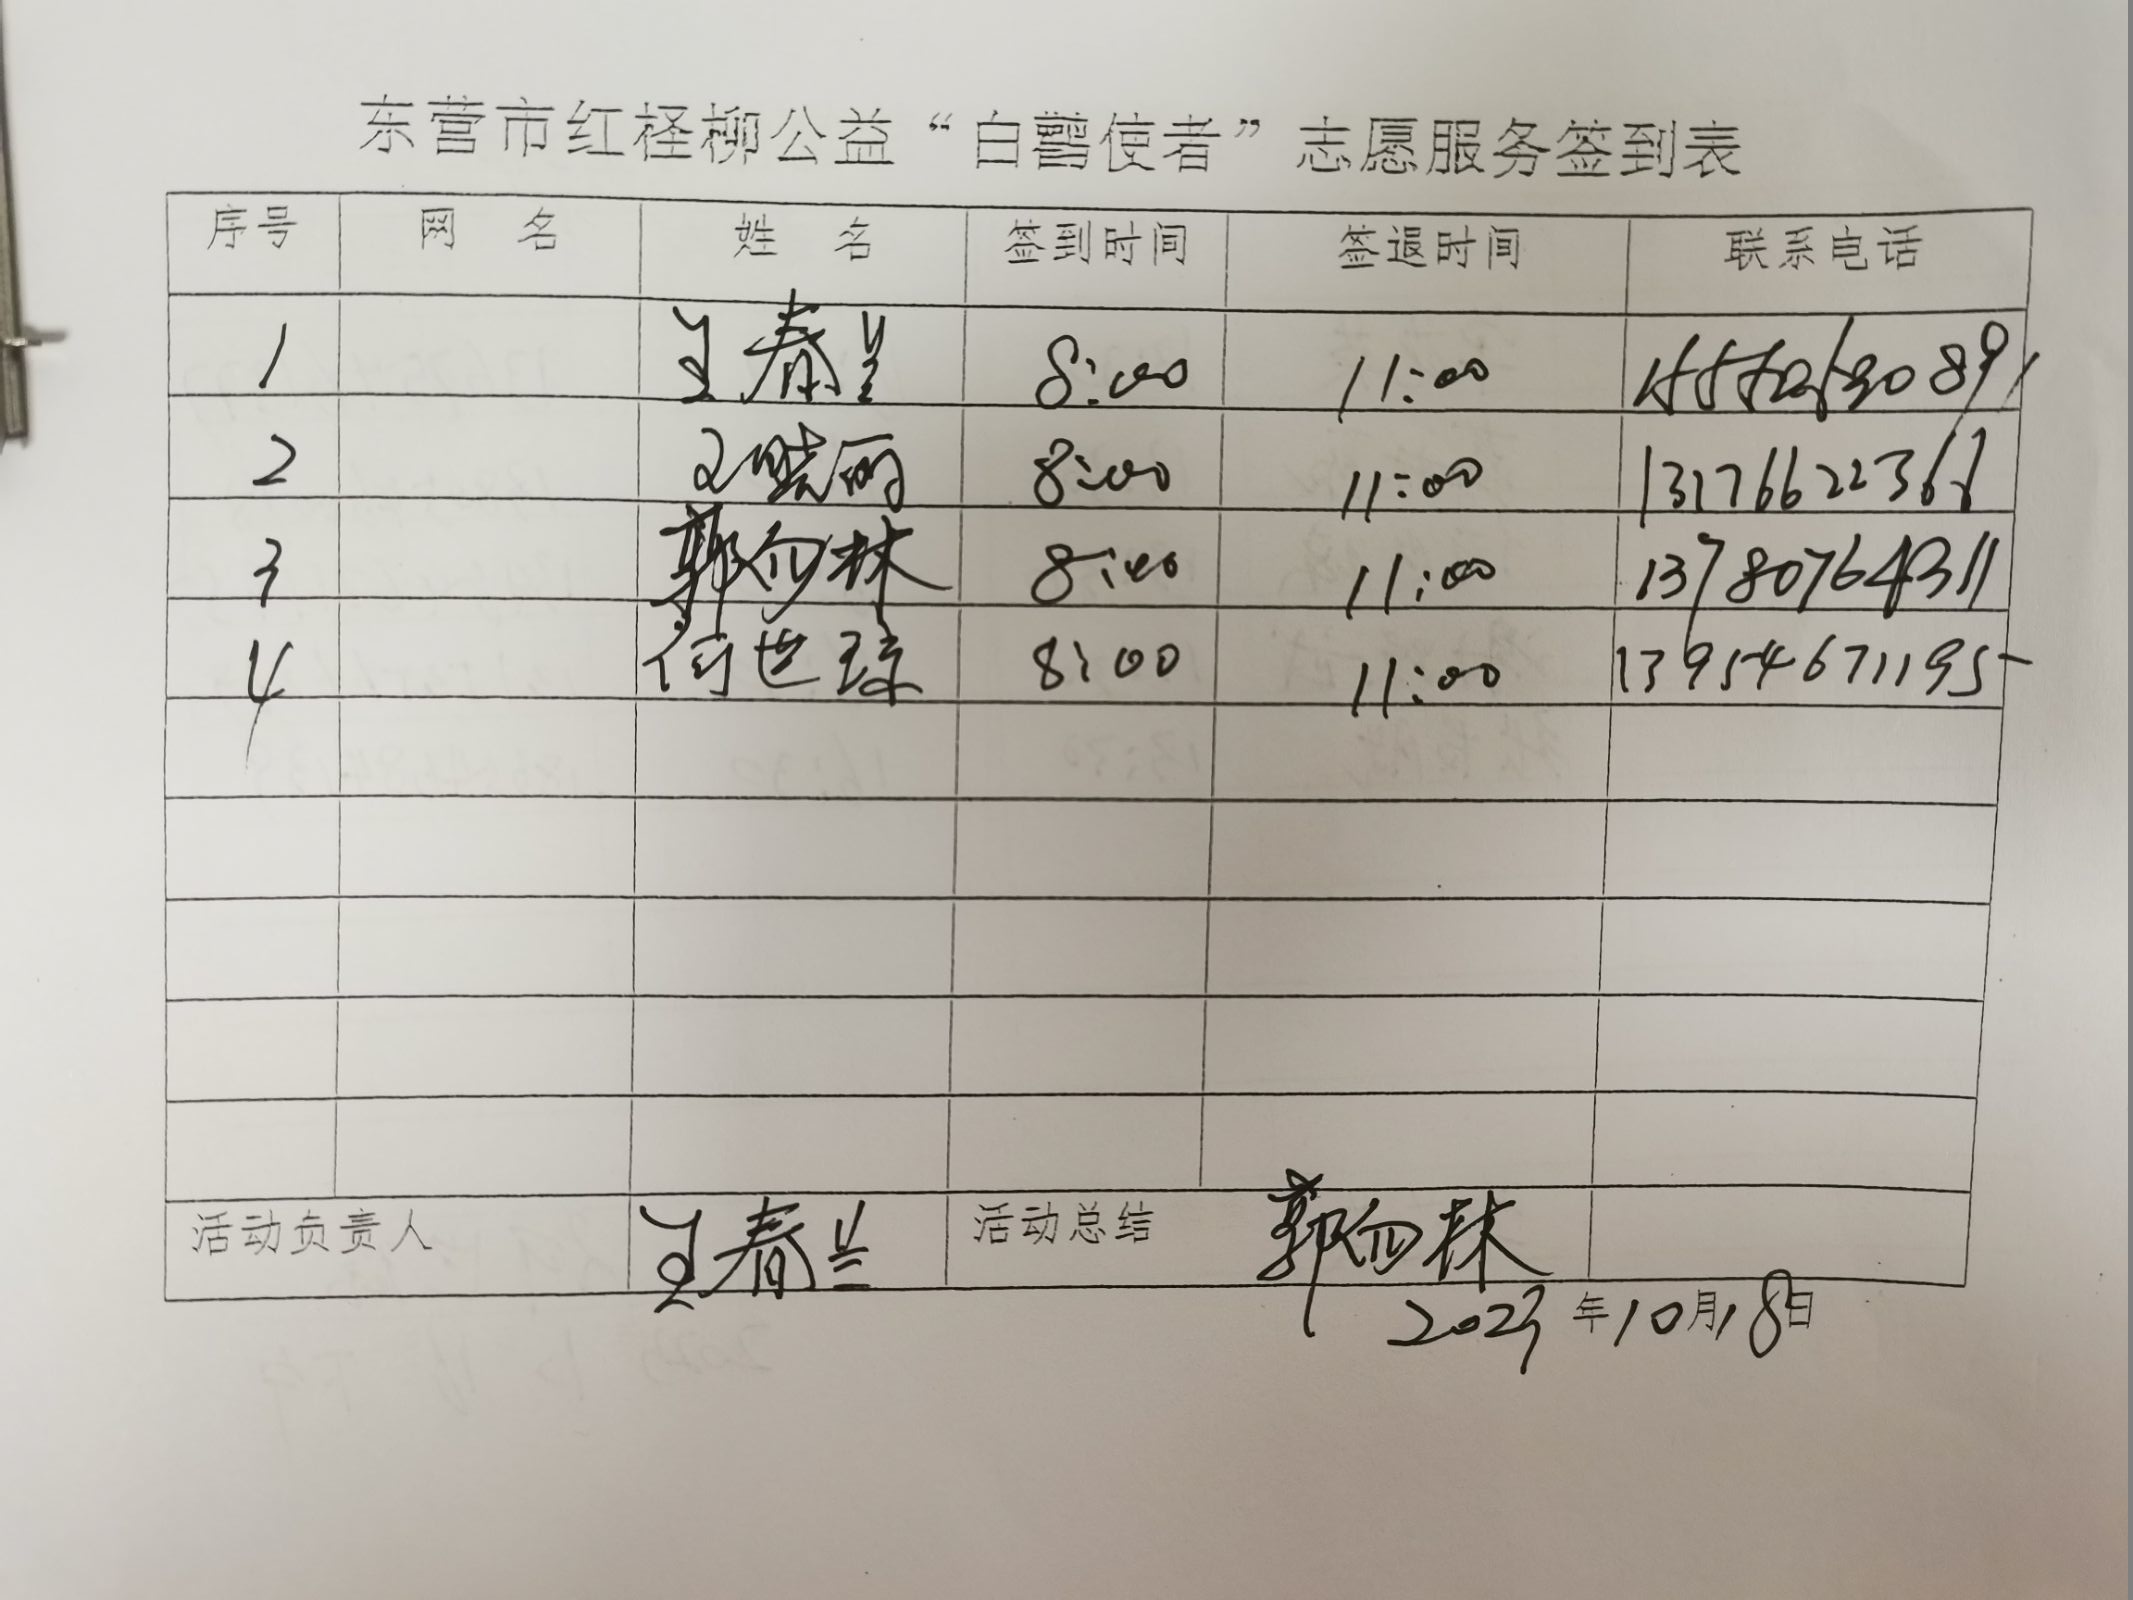 东营市红柽柳公益“白鹳使者”志愿服务签到表
序号 网 名 姓 名 签到时间 签退时间 联系电话
1 王春兰 8:00 11:00
2 王晓丽 8:00 11:00 13176622361
3 郭向林 8:00 11:00 13780764311
4 何世琼 8:00 11:00 13954671195
活动负责人 王春兰 活动总结 郭向林
2023年10月18日